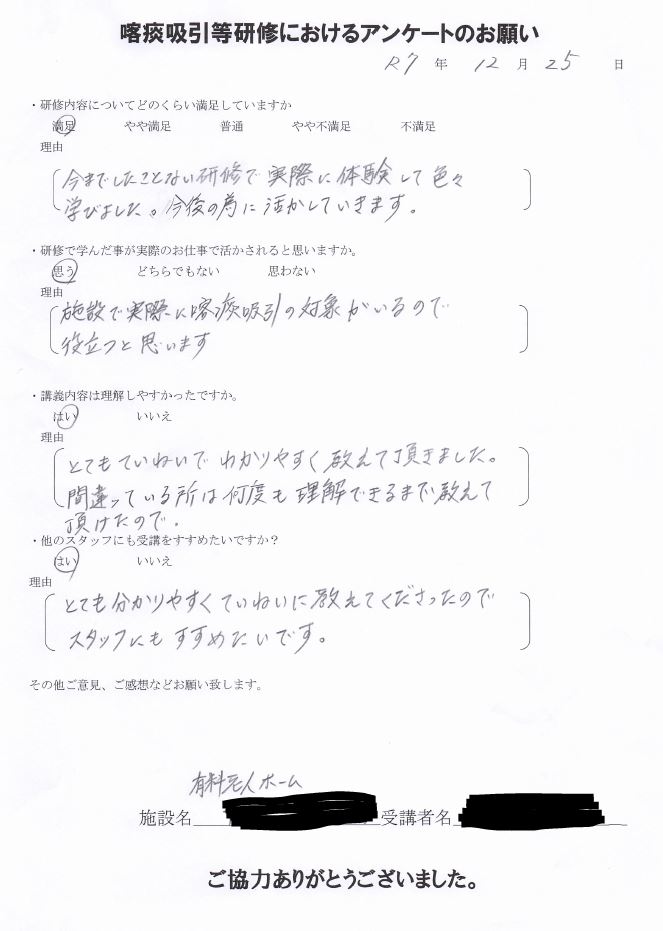 喀痰吸引等研修におけるアンケートのお願い
R7 年 12 月 25 日
・研修内容についてどのくらい満足していますか
満足 やや満足 普通 やや不満足 不満足
理由
今までしたことない研修で実際に体験して色々
学びました。今後の為に活かしていきます。
・研修で学んだ事が実際のお仕事で活かされると思いますか。
思う どちらでもない 思わない
理由
施設で実際に喀痰吸引の対象がいるので
役立つと思います
・講義内容は理解しやすかったですか。
はい いいえ
理由
とてもていねいでわかりやすく教えて頂きました。
間違っている所は何度も理解できるまで教えて
頂けたので。
・他のスタッフにも受講をすすめたいですか？
はい いいえ
理由
とても分かりやすくていねいに教えてくださったので
スタッフにもすすめたいです。
その他ご意見、ご感想などお願い致します。
有料老人ホーム
施設名 受講者名
ご協力ありがとうございました。